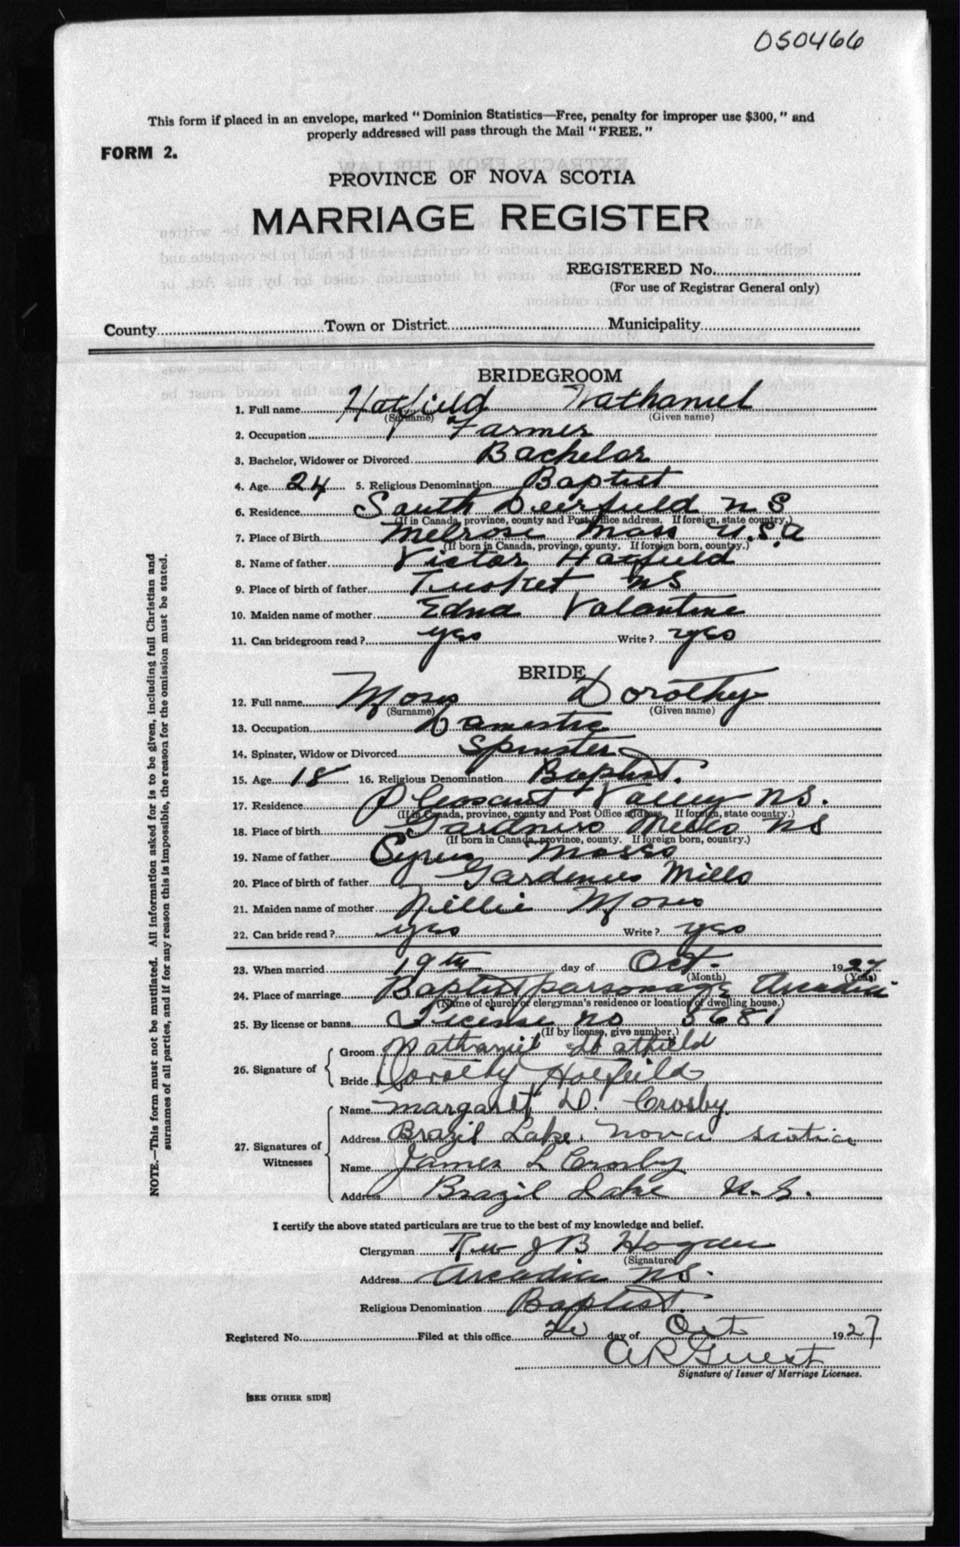 050466
This form if placed in an envelope, marked "Dominion Statistics—Free, penalty for improper use $300," and
properly addressed will pass through the Mail "FREE."
FORM 2.
PROVINCE OF NOVA SCOTIA
MARRIAGE REGISTER
REGISTERED No.
(For use of Registrar General only)
County Town or District Municipality
BRIDEGROOM
1. Full name Hatfield Nathaniel
(Surname) (Given name)
2. Occupation Farmer
3. Bachelor, Widower or Divorced Bachelor
4. Age 24 5. Religious Denomination Baptist
6. Residence South Deerfield N S
(If in Canada, province, county and Post Office address. If foreign, state country.)
7. Place of Birth Melrose Mass U.S.A
(If born in Canada, province, county. If foreign born, country.)
8. Name of father Victor Hatfield
9. Place of birth of father Tusket NS
10. Maiden name of mother Edna Valantine
11. Can bridegroom read? yes Write? yes
BRIDE
12. Full name Moses Dorothy
(Surname) (Given name)
13. Occupation Domestic
14. Spinster, Widow or Divorced Spinster
15. Age 18 16. Religious Denomination Baptist.
17. Residence Pleasant Valley NS.
(If in Canada, province, county and Post Office address. If foreign, state country.)
18. Place of birth Gardners Mills NS
(If born in Canada, province, county. If foreign born, country.)
19. Name of father Cyrus Moses
20. Place of birth of father Gardeners Mills
21. Maiden name of mother Nillie Moses
22. Can bride read? yes Write? yes
23. When married 19th day of Oct. 1927
(Month) (Year)
24. Place of marriage Baptist parsonage Arcadia
(Name of church or clergyman's residence or location of dwelling house.)
25. By license or banns License no 5681
(If by license, give number.)
26. Signature of Groom Nathaniel Hatfield
Bride Dorothy Hatfield
27. Signatures of Witnesses Name Margaret D. Crosby.
Address Brazil Lake. Nova Scotia
Name James L Crosby
Address Brazil Lake N.S.
I certify the above stated particulars are true to the best of my knowledge and belief.
Clergyman Rev J B Hogan
(Signature)
Address Arcadia NS.
Religious Denomination Baptist.
Registered No. Filed at this office 20 day of Oct 1927
A R Guest
Signature of Issuer of Marriage Licenses.
[SEE OTHER SIDE]
NOTE.—This form must not be mutilated. All information asked for is to be given, including full Christian and
surnames of all parties, and if for any reason this is impossible, the reason for the omission must be stated.